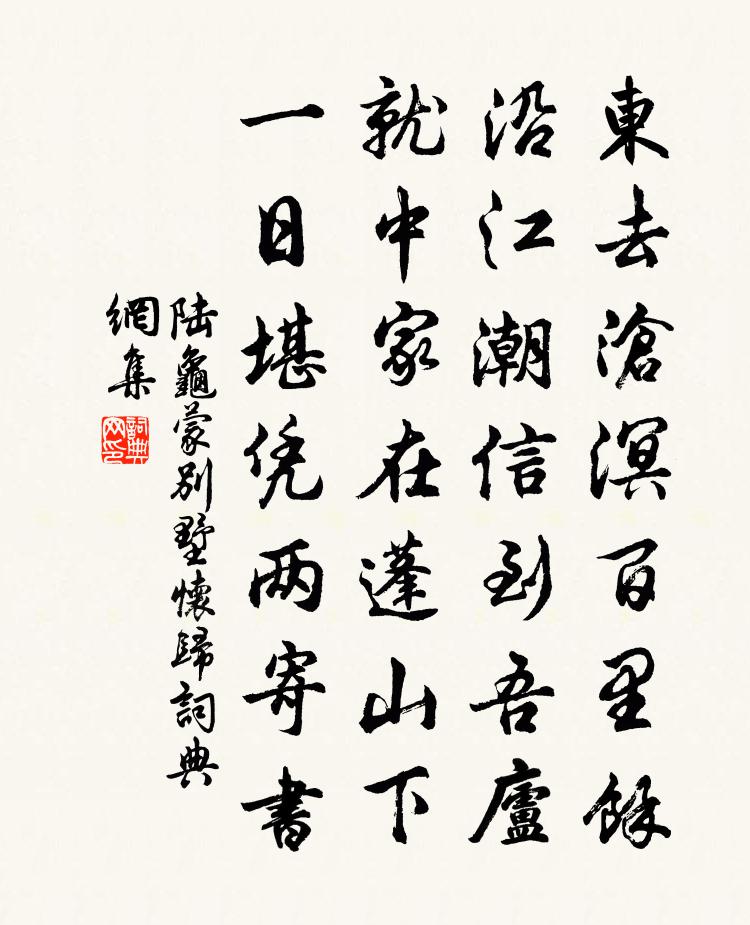 東去滄溟百里餘
沿江潮信到吾廬
就中家在蓬山下
一日堪凭两寄書
陆龜蒙別墅懷歸詞典
網集
詞典
网印